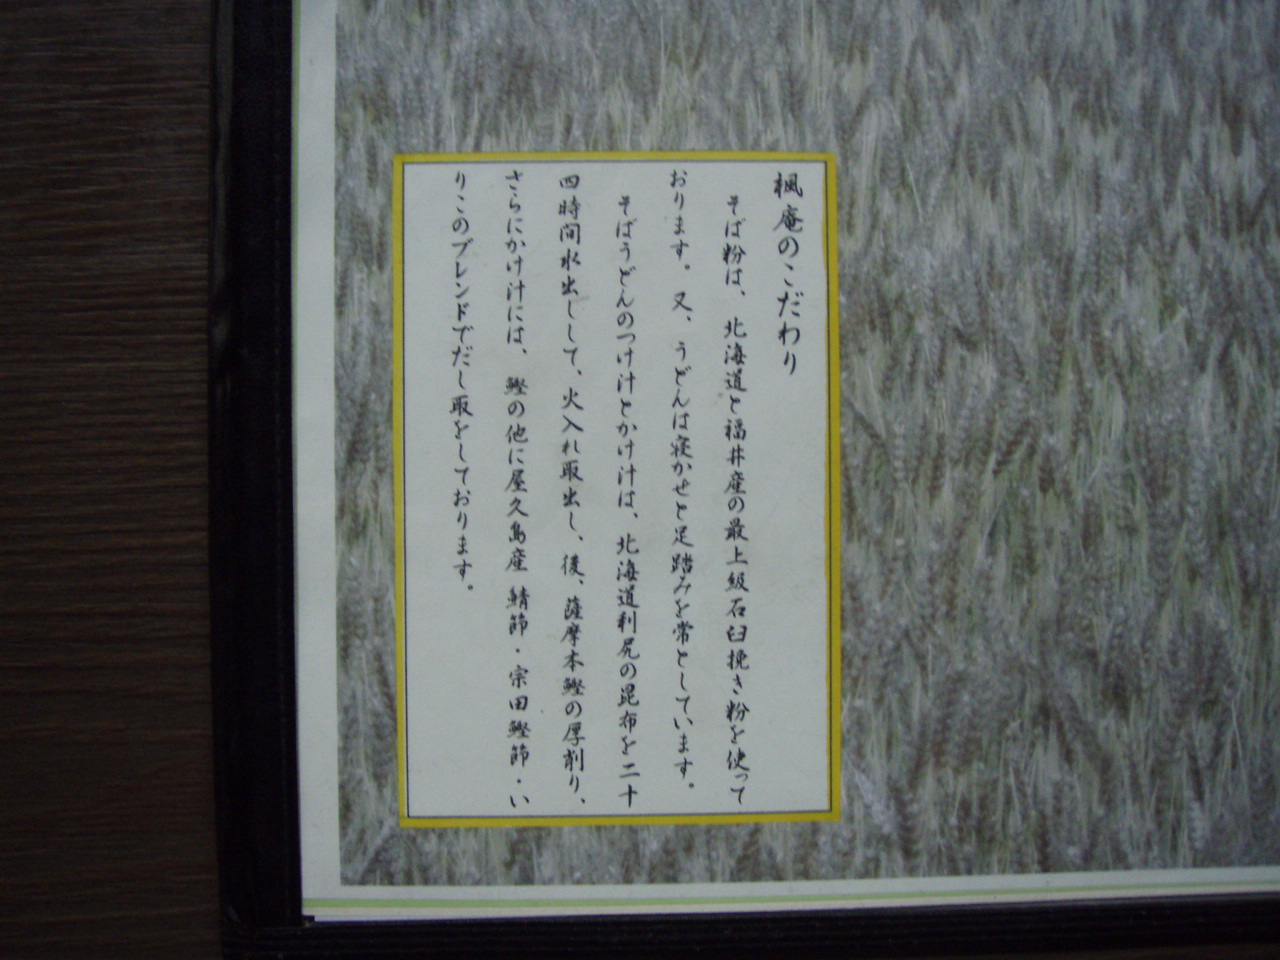 楓庵のこだわり
そば粉は、北海道と福井産の最上級石臼挽き粉を使って
おります。又、うどんは寝かせと足踏みを常としています。
そばうどんのつけ汁とかけ汁は、北海道利尻の昆布を二十
四時間水出しして、火入れ取出し、後、薩摩本鰹の厚削り、
さらにかけ汁には、鰹の他に屋久島産 鯖節・宗田鰹節・い
りこのブレンドでだし取をしております。